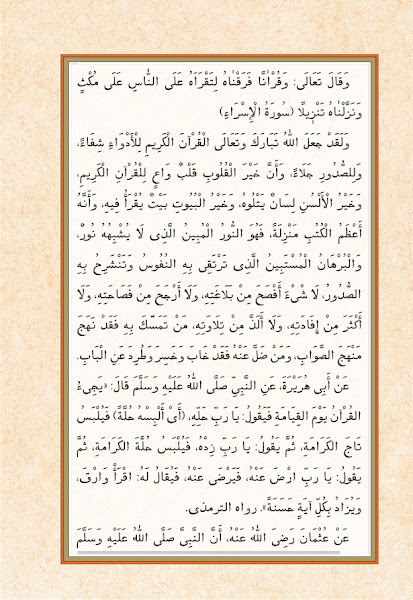 وَقَالَ تَعَالَى: وَقُرْاٰنًا فَرَقْنَاهُ لِتَقْرَاَهُ عَلَى النَّاسِ عَلَى مُكْثٍ
وَنَزَّلْنَاهُ تَنْزِيلًا (سُورَةُ الْإِسْرَاءِ)
وَلَقَدْ جَعَلَ اللّٰهُ تَبَارَكَ وَتَعَالَى الْقُرْآنَ الْكَرِيمَ لِلْأَدْوَاءِ شِفَاءً،
وَلِلصُّدُورِ جَلَاءً، وَأَنَّ خَيْرَ الْقُلُوبِ قَلْبٌ وَاعٍ لِلْقُرْآنِ الْكَرِيمِ،
وَخَيْرُ الْأَلْسُنِ لِسَانٌ يَتْلُوهُ، وَخَيْرُ الْبُيُوتِ بَيْتٌ يُقْرَأُ فِيهِ، وَأَنَّهُ
أَعْظَمُ الْكُتُبِ مَنْزِلَةً، فَهُوَ النُّورُ الْمُبِينُ الَّذِى لَا يُشْبِهُهُ نُورٌ،
وَالْبُرْهَانُ الْمُسْتَبِينُ الَّذِى تَرْتَقِى بِهِ النُّفُوسُ وَتَنْشَرِحُ بِهِ
الصُّدُورُ، لَا شَىْءَ أَفْصَحَ مِنْ بَلَاغَتِهِ، وَلَا أَرْجَحَ مِنْ فَصَاحَتِهِ، وَلَا
أَكْثَرَ مِنْ إِفَادَتِهِ، وَلَا أَلَذَّ مِنْ تِلَاوَتِهِ، مَنْ تَمَسَّكَ بِهِ فَقَدْ نَهَجَ
مَنْهَجَ الصَّوَابِ، وَمَنْ ضَلَّ عَنْهُ فَقَدْ خَابَ وَخَسِرَ وَطُرِدَ عَنِ الْبَابِ.
عَنْ أَبِى هُرَيْرَةَ، عَنِ النَّبِيِّ صَلَّى اللّٰهُ عَلَيْهِ وَسَلَّمَ قَالَ: «يَجِىءُ
الْقُرْآنُ يَوْمَ الْقِيَامَةِ فَيَقُولُ: يَا رَبِّ حَلِّهِ، (أَى أَلْبِسْهُ حُلَّةً) فَيُلْبَسُ
تَاجَ الْكَرَامَةِ، ثُمَّ يَقُولُ: يَا رَبِّ زِدْهُ، فَيُلْبَسُ حُلَّةَ الْكَرَامَةِ، ثُمَّ
يَقُولُ: يَا رَبِّ ارْضَ عَنْهُ، فَيَرْضَى عَنْهُ، فَيُقَالُ لَهُ: اقْرَأْ وَارْقَ،
وَيُزَادُ بِكُلِّ آيَةٍ حَسَنَةً». رواه الترمذى.
عَنْ عُثْمَانَ رَضِىَ اللّٰهُ عَنْهُ، أَنَّ النَّبِىَّ صَلَّى اللّٰهُ عَلَيْهِ وَسَلَّمَ